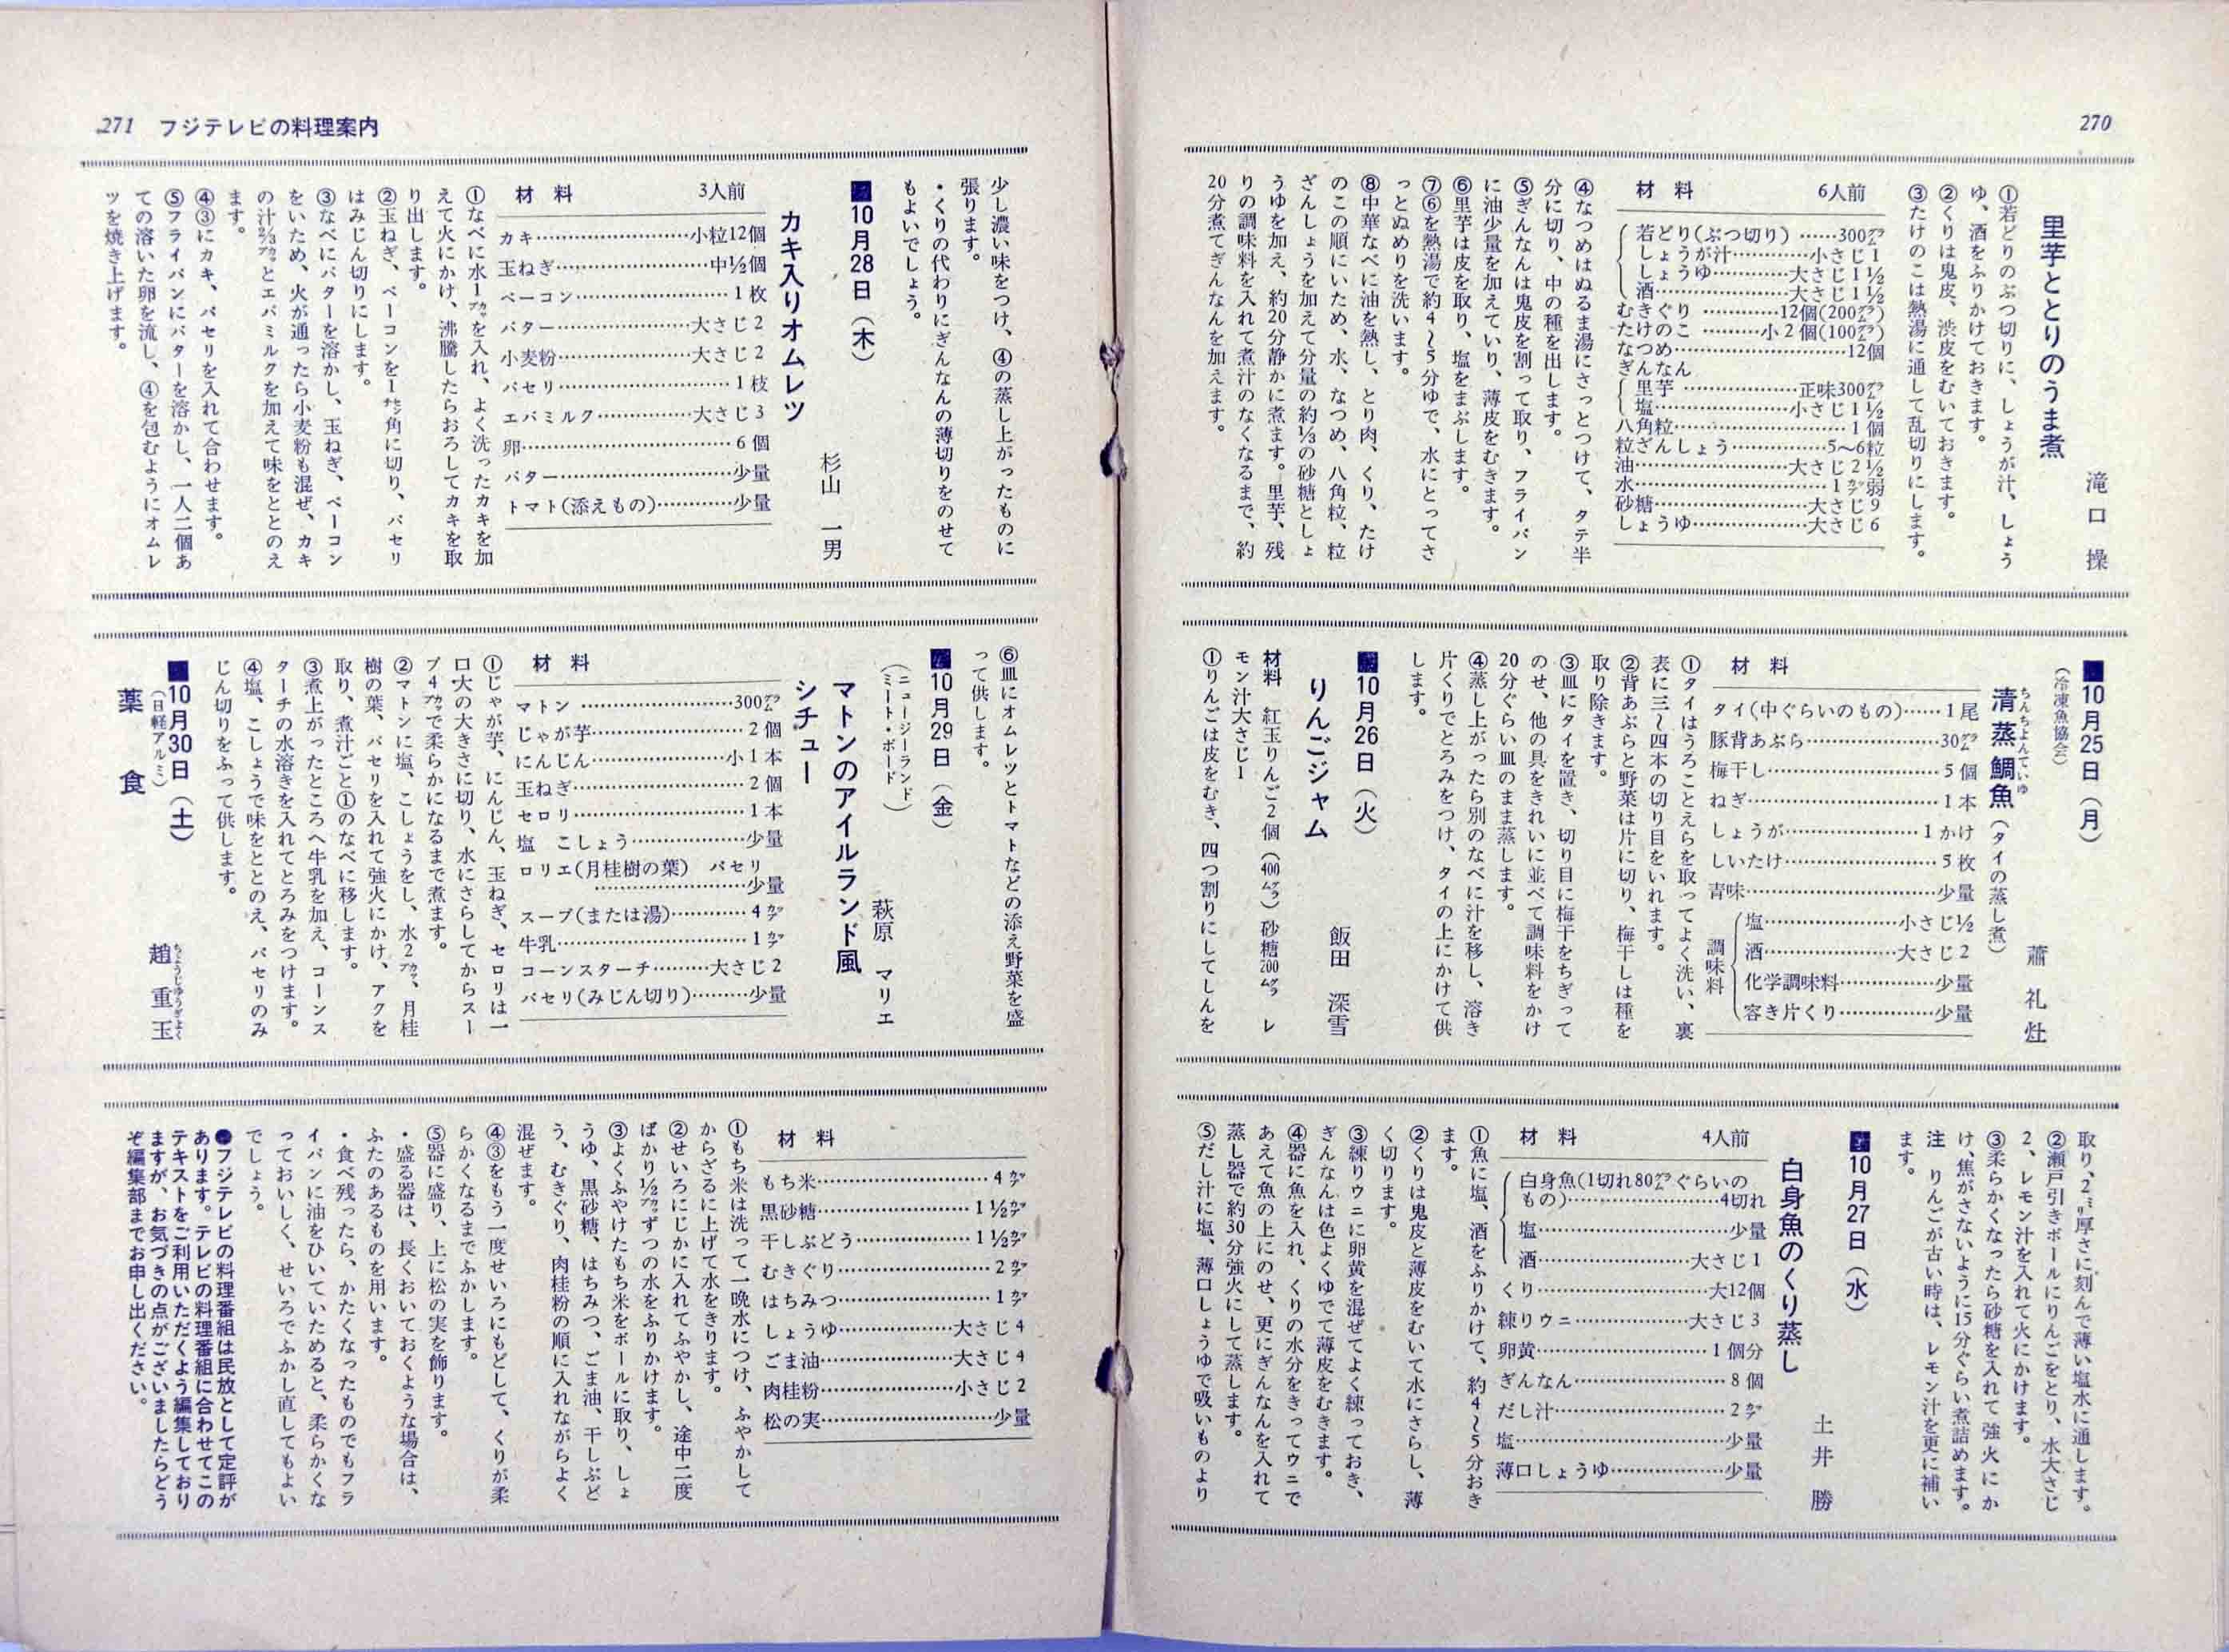 270
里芋ととりのうま煮
滝口 操
①若どりのぶつ切りに、しょうが汁、しょう
ゆ、酒をふりかけておきます。
②くりは鬼皮、渋皮をむいておきます。
③たけのこは熱湯に通して乱切りにします。
材料 6人前
若どり(ぶつ切り)……300㌘
しょうが汁…………小さじ1
しょうゆ…………大さじ1½
酒…………………大さじ1½
むきぐり…………12個(200㌘)
たけのこ………小2個(100㌘)
なつめ…………………12個
ぎんなん
里芋……………正味300㌘
塩………………小さじ1½
八角粒……………………1個
粒ざんしょう…………5〜6粒
油………………大さじ2½
水………………………1㌍弱
砂糖………………大さじ9
しょうゆ……………大さじ6
④なつめはぬるま湯にさっとつけて、タテ半
分に切り、中の種を出します。
⑤ぎんなんは鬼皮を割って取り、フライパン
に油少量を加えていり、薄皮をむきます。
⑥里芋は皮を取り、塩をまぶします。
⑦⑥を熱湯で約4〜5分ゆで、水にとってさ
っとぬめりを洗います。
⑧中華なべに油を熱し、とり肉、くり、たけ
のこの順にいため、水、なつめ、八角粒、粒
ざんしょうを加えて分量の約⅓の砂糖としょ
うゆを加え、約20分静かに煮ます。里芋、残
りの調味料を入れて煮汁のなくなるまで、約
20分煮てぎんなんを加えます。
■10月25日(月)
(冷凍魚協会)
清蒸鯛魚(タイの蒸し煮)
ちんちよんていゆ
蕭 礼 灶
材料
タイ(中ぐらいのもの)……1尾
豚背あぶら………………30㌘
梅干し……………………5個
ねぎ………………………1本
しょうが…………………1かけ
しいたけ…………………5枚
青味………………………少量
調味料
塩………………小さじ½
酒………………大さじ2
化学調味料…………少量
容き片くり…………少量
①タイはうろことえらを取ってよく洗い、裏
表に三〜四本の切り目をいれます。
②背あぶらと野菜は片に切り、梅干しは種を
取り除きます。
③皿にタイを置き、切り目に梅干をちぎって
のせ、他の具をきれいに並べて調味料をかけ
20分ぐらい皿のまま蒸します。
④蒸し上がったら別のなべに汁を移し、溶き
片くりでとろみをつけ、タイの上にかけて供
します。
■10月26日(火)
りんごジャム
飯田 深雪
材料 紅玉りんご2個(400㌘)砂糖200㌘ レ
モン汁大さじ1
①りんごは皮をむき、四つ割りにしてしんを
取り、2㍉厚さに刻んで薄い塩水に通します。
②瀬戸引きボールにりんごをとり、水大さじ
2、レモン汁を入れて火にかけます。
③柔らかくなったら砂糖を入れて強火にか
け、焦がさないように15分ぐらい煮詰めます。
注 りんごが古い時は、レモン汁を更に補い
ます。
■10月27日(水)
白身魚のくり蒸し
土井 勝
材料 4人前
白身魚(1切れ80㌘ぐらいの
もの)…………………4切れ
塩……………………少量
酒………………大さじ1
くり……………………大12個
練りウニ……………大さじ3
卵黄……………………1個分
ぎんなん…………………8個
だし汁……………………2㌍
塩…………………………少量
薄口しょうゆ……………少量
①魚に塩、酒をふりかけて、約4〜5分おき
ます。
②くりは鬼皮と薄皮をむいて水にさらし、薄
く切ります。
③練りウニに卵黄を混ぜてよく練っておき、
ぎんなんは色よくゆでて薄皮をむきます。
④器に魚を入れ、くりの水分をきってウニで
あえて魚の上にのせ、更にぎんなんを入れて
蒸し器で約30分強火にして蒸します。
⑤だし汁に塩、薄口しょうゆで吸いものより
271 フジテレビの料理案内
少し濃い味をつけ、④の蒸し上がったものに
張ります。
・くりの代わりにぎんなんの薄切りをのせて
もよいでしょう。
■10月28日(木)
カキ入りオムレツ
杉山 一男
材料 3人前
カキ…………………小粒12個
玉ねぎ…………………中½個
ベーコン…………………1枚
バター………………大さじ2
小麦粉………………大さじ2
パセリ……………………1枝
エバミルク…………大さじ3
卵…………………………6個
バター……………………少量
トマト(添えもの)………少量
①なべに水1㌍を入れ、よく洗ったカキを加
えて火にかけ、沸騰したらおろしてカキを取
り出します。
②玉ねぎ、ベーコンを1㌢角に切り、パセリ
はみじん切りにします。
③なべにバターを溶かし、玉ねぎ、ベーコン
をいため、火が通ったら小麦粉も混ぜ、カキ
の汁⅔㌍とエバミルクを加えて味をととのえ
ます。
④③にカキ、パセリを入れて合わせます。
⑤フライパンにバターを溶かし、一人二個あ
ての溶いた卵を流し、④を包むようにオムレ
ツを焼き上げます。
⑥皿にオムレツとトマトなどの添え野菜を盛
って供します。
■10月29日(金)
(ニュージーランド
ミート・ボード)
マトンのアイルランド風
シチュー
萩原 マリエ
材料
マトン…………………300㌘
じゃが芋…………………2個
にんじん………………小1本
玉ねぎ……………………2個
セロリ……………………1本
塩 こしょう……………少量
ロリエ(月桂樹の葉) パセリ
…………………少量
スープ(または湯)…………4㌍
牛乳………………………1㌍
コーンスターチ………大さじ2
パセリ(みじん切り)………少量
①じゃが芋、にんじん、玉ねぎ、セロリは一
口大の大きさに切り、水にさらしてからスー
プ4㌍で柔らかになるまで煮ます。
②マトンに塩、こしょうをし、水2㌍、月桂
樹の葉、パセリを入れて強火にかけ、アクを
取り、煮汁ごと①のなべに移します。
③煮上がったところへ牛乳を加え、コーンス
ターチの水溶きを入れてとろみをつけます。
④塩、こしょうで味をととのえ、パセリのみ
じん切りをふって供します。
■10月30日(土)
(日軽アルミ)
薬食
趙 重玉
材料
もち米……………………4㌍
黒砂糖…………………1½㌍
干しぶどう……………1½㌍
むきぐり…………………2㌍
はちみつ…………………1㌍
しょうゆ……………大さじ4
ごま油………………大さじ4
肉桂粉………………小さじ2
松の実……………………少量
①もち米は洗って一晩水につけ、ふやかして
からざるに上げて水をきります。
②せいろにじかに入れてふやかし、途中二度
ばかり½㌍ずつの水をふりかけます。
③よくふやけたもち米をボールに取り、しょ
うゆ、黒砂糖、はちみつ、ごま油、干しぶど
う、むきぐり、肉桂粉の順に入れながらよく
混ぜます。
④③をもう一度せいろにもどして、くりが柔
らかくなるまでふかします。
⑤器に盛り、上に松の実を飾ります。
・盛る器は、長くおいておくような場合は、
ふたのあるものを用います。
・食べ残ったら、かたくなったものでもフラ
イパンに油をひいていためると、柔らかくな
っておいしく、せいろでふかし直してもよい
でしょう。
●フジテレビの料理番組は民放として定評が
あります。テレビの料理番組に合わせてこの
テキストをご利用いただくよう編集しており
ますが、お気づきの点がございましたらどう
ぞ編集部までお申し出ください。